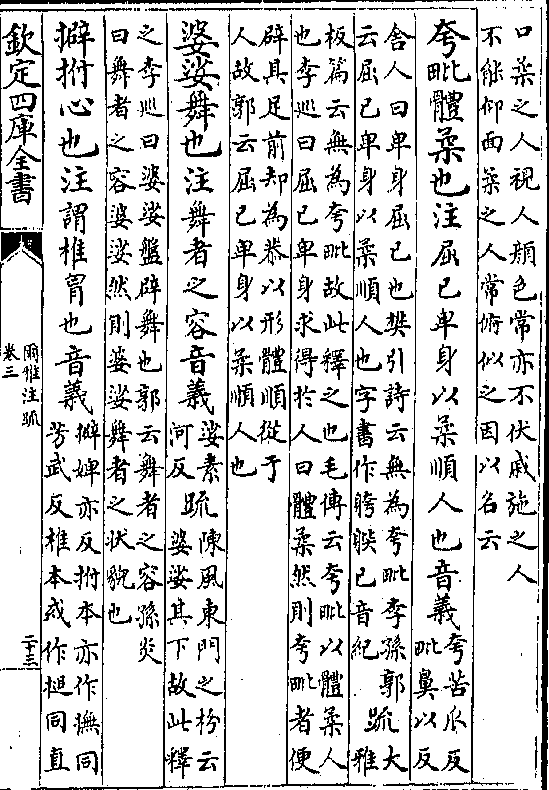 口柔之人視人顔色常亦不伏戚施之人
不能仰面柔之人常俯似之因以名云
夸毗體柔也注屈已卑身以柔順人也音義夸苦瓜反
毗鼻以反
舍人曰卑身屈已也樊引詩云無為夸毗李孫郭
云屈已卑身以柔順人也字書作䠸躾已音紀
疏大雅
板篇云無為夸毗故此釋之也毛傳云夸毗以體柔人
也李巡曰屈已卑身求得於人曰體柔然則夸毗者便
辟其足前却為恭以形體順從于
人故郭云屈已卑身以柔順人也
婆娑舞也注舞者之容音義娑素
河反
疏陳風東門之枌云
婆娑其下故此釋
之李巡曰婆娑盤辟舞也郭云舞者之容孫炎
曰舞者之容婆娑然則婆娑舞者之狀貌也
擗拊心也注謂椎胷也音義擗婢亦反拊本亦作撫同
芳武反椎本或作搥同直
欽定四庫全書
爾雅注疏
卷三
二十三